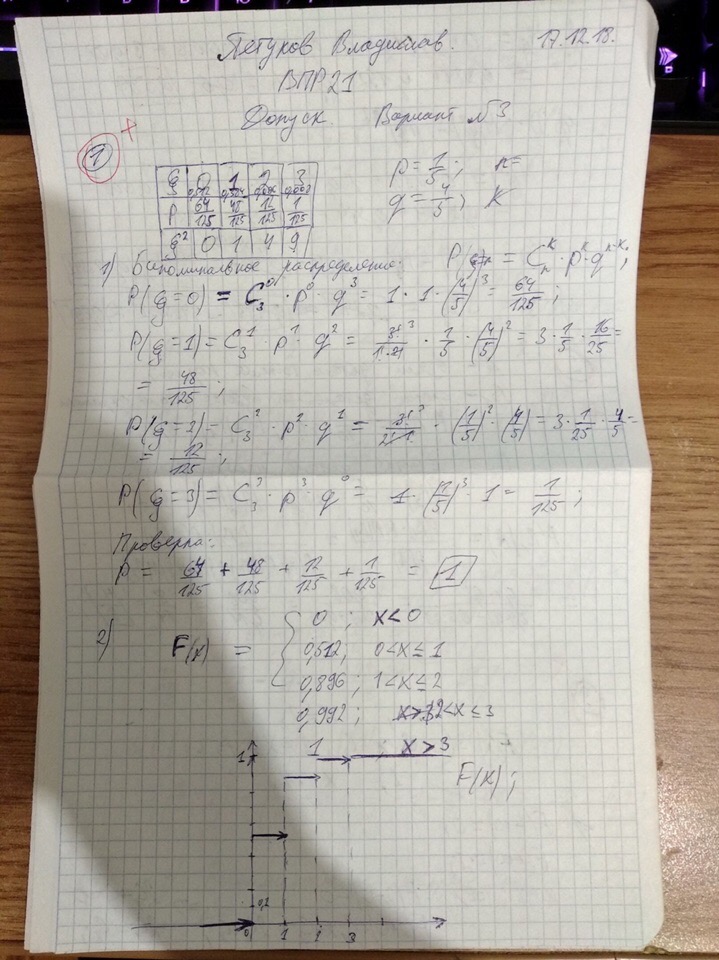 Петухов Владислав. 17.12.18.
ВПР21
Допуск. Вариант №3
1 +
ξ 0 1 2 3
0,512 0,384 0,096 0,008
P 64/125 48/125 12/125 1/125
ξ² 0 1 4 9
p = 1/5; n=
q = 4/5; K
1) Биноминальное распределение: = C_n^k · p^k · q^{n-k};
P(ξ=0) = C_3^0 · p^0 · q^3 = 1 · 1 · (4/5)^3 = 64/125;
P(ξ=1) = C_3^1 · p^1 · q^2 = 3!/1!·2! · 1/5 · (4/5)^2 = 3 · 1/5 · 16/25 =
= 48/125;
P(ξ=2) = C_3^2 · p^2 · q^1 = 3!/2!·1! · (1/5)^2 · (4/5) = 3 · 1/25 · 4/5 =
= 12/125;
P(ξ=3) = C_3^3 · p^3 · q^0 = 1 · (1/5)^3 · 1 = 1/125;
Проверка:
P = 64/125 + 48/125 + 12/125 + 1/125 = 1
2) F(x) = { 0; x<0
0,512; 0<x≤1
0,896; 1<x≤2
0,992; 2<x≤3
1; x>3
1
F(x);
0,1
0 1 2 3